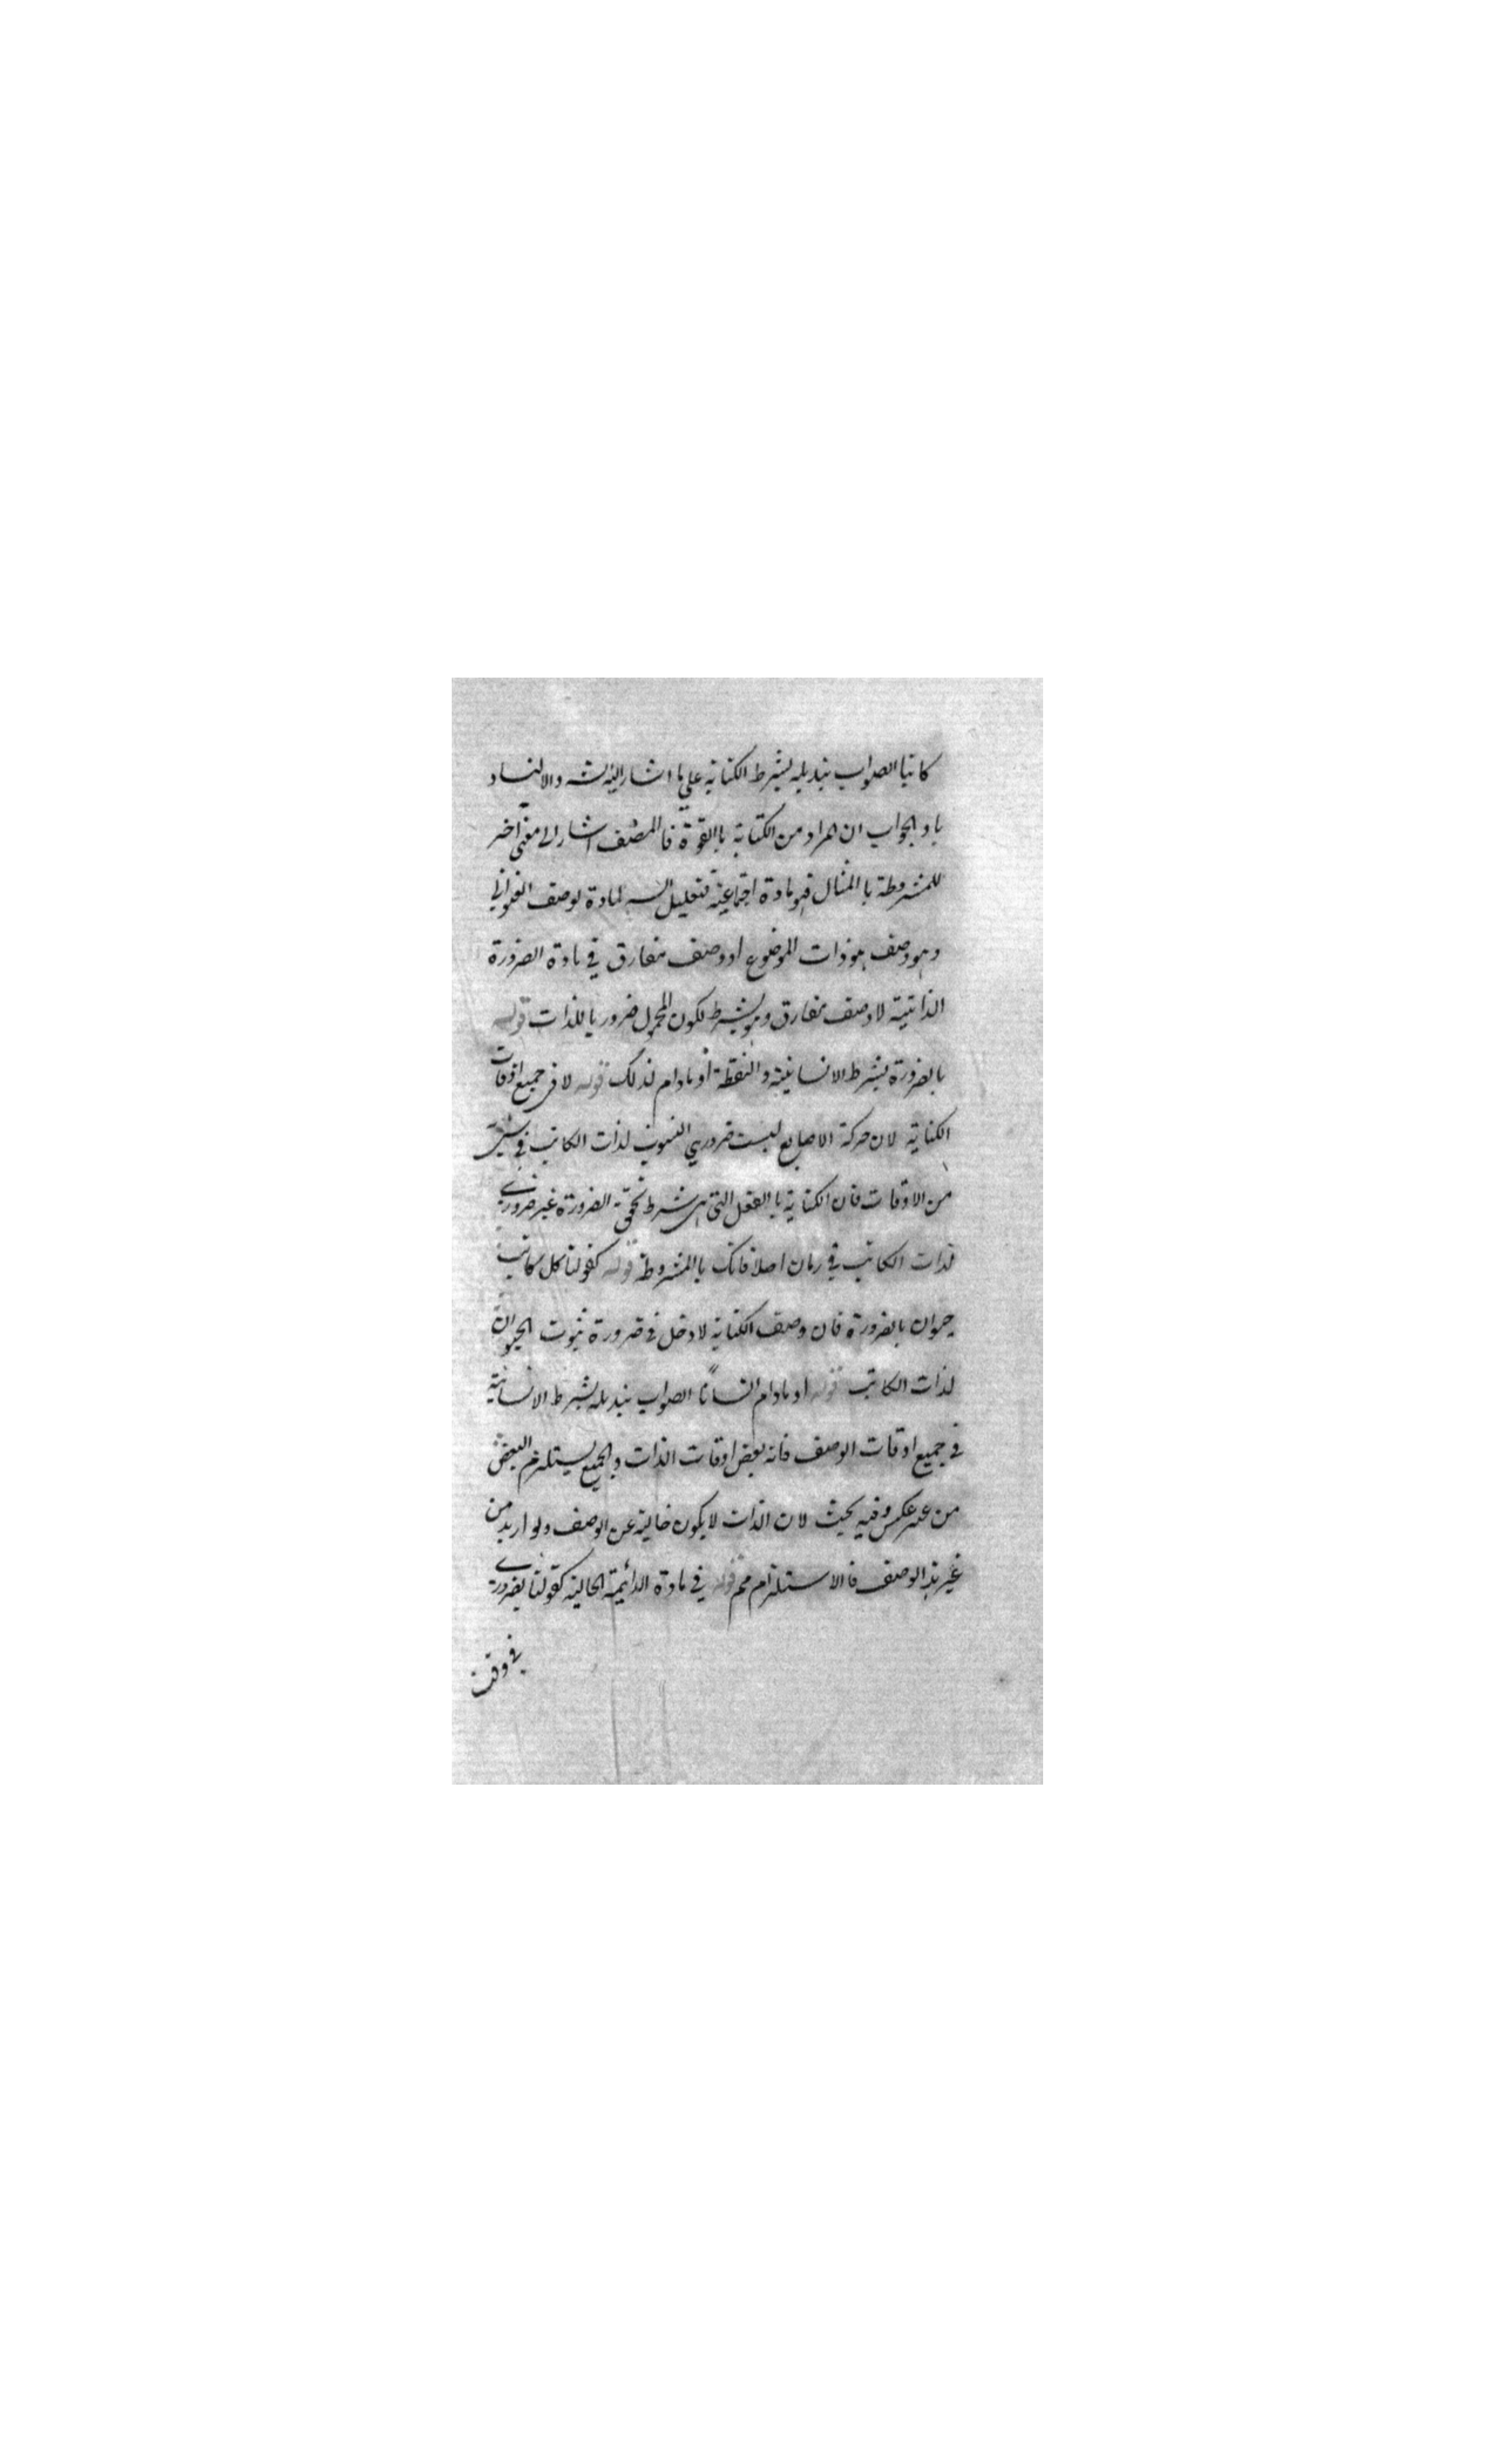 كاتبا الصواب تبديله بشرط الكتابة علي ما اشار اليه والا لفساد
با والجواب ان المراد من الكتابة باالقوة فالمصنف اشار الى معنى اخر
للمشروطة باالمثال فهو مادة اجتماعية فتعليل لمادة لوصف العنواني
وهو وصف هو ذات الموضوع او وصف مفارق في مادة الضرورة
الذاتية لا وصف مفارق وهو بشرط لكون المحمول ضروريا للذات قوله
بالضرورة بشرط الانسانية والنقطة او مادام لذلك قوله لا في جميع اوقات
الكتابة لان حركة الاصابع ليست ضروري الثبوت لذات الكاتب في شيئ
من الاوقات فان الكتابة باالفعل التي هي شرط تحقق الضرورة غير ضروري
لذات الكاتب في زمان اصلا فانك باالمشروطة قوله كقولنا كل كاتب
حيوان بالضرورة فان وصف الكتابة لا دخل في ضرورة ثبوت الحيوان
لذات الكاتب قوله او مادام انسانًا الصواب تبديله بشرط الانسانية
في جميع اوقات الوصف فانه بعض اوقات الذات والجميع يستلزم البعض
من غير عكس وفيه بحث لان الذات لا يكون خالية عن الوصف ولو اريد من
غير هذا الوصف فاالاستلزام مم قوله في مادة الدائمة الخالية كقولنا بضرورة
في وقت